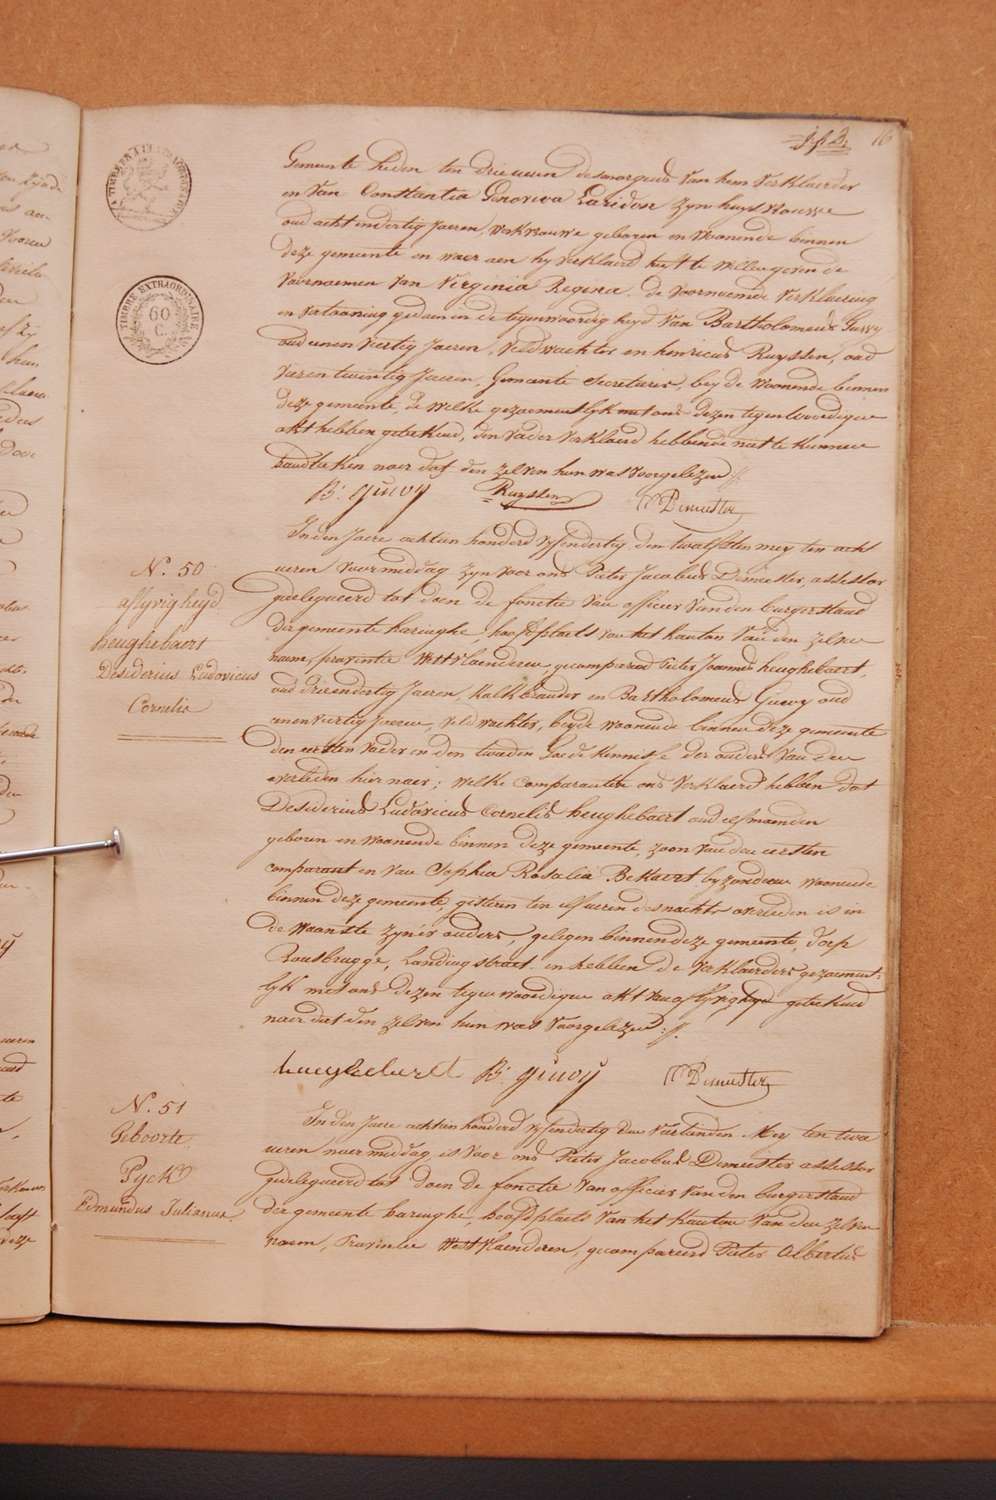 16
TIMBRE EXTRAORDINAIRE
60
C.
Gemeente heden ten drie ueren desmorgens van hem Verklaerder
en van Constantia Genoveva Laridon zyn huysvrouwe
oud acht en dertig Jaeren, werkvrouwe geboren en Woonende binnen
deze gemeente en waer aen hy verklaerd heeft te willen geven de
Voornoemen van Virginia Regina. de voornoemde Verklaering
en vertooning gedaen in de tegenwoordigheyd van Bartholomeus Guevy
oud eenen veertig Jaeren, veldwachter en henricus Ruyssen, oud
en twintig Jaeren, Gemeente Secretaris, beyde Woonende binnen
deze gemeente, de welke gezaementlyk met ons dezen tegenwoordigen
akt hebben geteekend, den Vader verklaerd hebbende niet te kunnen
naer dat den zelven hun was voorgelezen
B. guevy Ruyssen P Demeester
N. 50
aflyvigheyd
heughebaert
Desiderius Ludovicus
Cornelis
In den Jaere achtien honderd vyfendertig den twalfsten mey ten acht
ueren voormiddag zyn voor ons Pieter Jacobus Demeester, assessor
gedelegueerd tot doen de fonctie van officier van den burgerstand
der gemeente haringhe, hoofdplaets van het kanton van den zelven
naem, provintie Westvlaenderen, gecompareerd Pieter Joannes heughebaert,
oud drie en dertig Jaeren, Kalkbrander en Bartholomeus Guevy oud
eenen veertig Jaeren, veldwachter, beyde woonende binnen deze gemeente
den eersten vader en den tweeden goede kennisse der ouders van den
overleden hier naer; welke comparanten ons verklaerd hebben dat
Desiderius Ludovicus Cornelis heughebaert oud elf maenden
geboren en woonende binnen deze gemeente, zoon van den eersten
comparant en van Sophia Rosalia Bekaert byzondere woonende
binnen deze gemeente, gisteren ten elf ueren des nachts overleden is in
de woonste zyn'er ouders, gelegen binnen deze gemeente, dorp
Rousbrugge, Landing straet en hebben de verklaerders gezaement-
lyk met ons dezen tegenwoordigen akt van aflyvigheyd geteekend
naer dat den zelven hun was voorgelezen
heughebaert B. guevy P Demeester
N. 51
Geboorte
Pyck
Edmundus Julianus
In den Jaere achtien honderd vyfendertig den veertienden Mey ten twa
ueren naermiddag is voor ons Pieter Jacobus Demeester assessor
gedelegueerd tot doen de fonctie van officier van den burgerstand
der gemeente haringhe, hoofdplaets van het kanton van den zelven
naem, provintie Westvlaenderen, gecompareerd Pieter Albertus